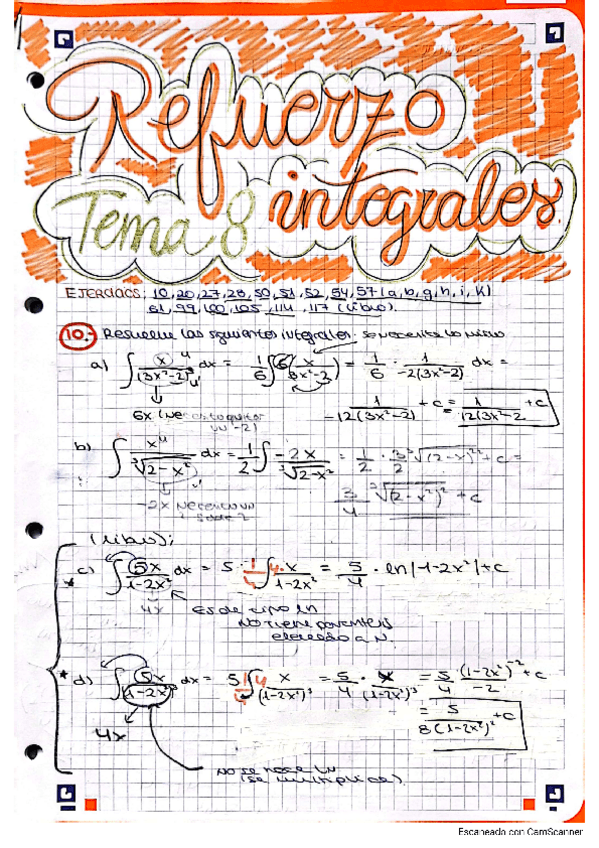 Refuerzo
Tema 8 integrales
Ejercicios: 10, 20, 27, 28, 50, 51, 52, 54, 57 (a, b, g, h, i, k)
61, 99, 100, 105, 114, 117 (libro).
10.- Resuelve las siguientes integrales.
a) ∫ x/(3x²-2)² dx = 1/6 ∫ 6 x/(3x²-2) = 1/6 · 1/-2(3x²-2) dx =
1/-12(3x²-2) + c = 1/12(3x²-2 + c
6x
b) ∫ x/∛(2-x²) dx = 1/2 ∫ -2x/∛(2-x²) = 1/2 · 3/2 ∛(2-x)²² + c =
3/4 ∛(2-x²)² + c
2x
(libro);
* c) ∫ 5x/1-2x² dx = 5 · 1/4 ∫ 4· x/1-2x² = 5/4 · ln|1-2x²| + c
4x Es de tipo ln
No tiene parentesis
elevado a N.
* d) ∫ 5x/(1-2x²)³ dx = 5 1/4 ∫ 4 x/(1-2x²)³ = 5/4 · x/(1-2x²)³ = 5/4 · (1-2x²)⁻²/-2 + c
= 5/8(1-2x²)² + c
4x
No se hace LN
(se multiplica).
Escaneado con CamScanner